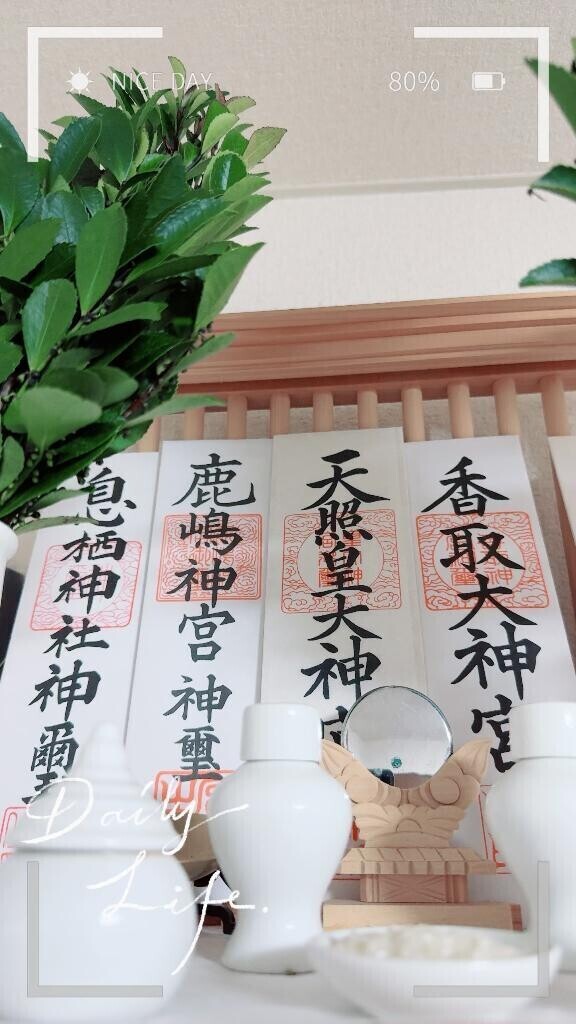 NICE DAY
80%
香取大神宮
天照皇大神宮
鹿嶋神宮神璽
息栖神社神璽
Daily
Life.